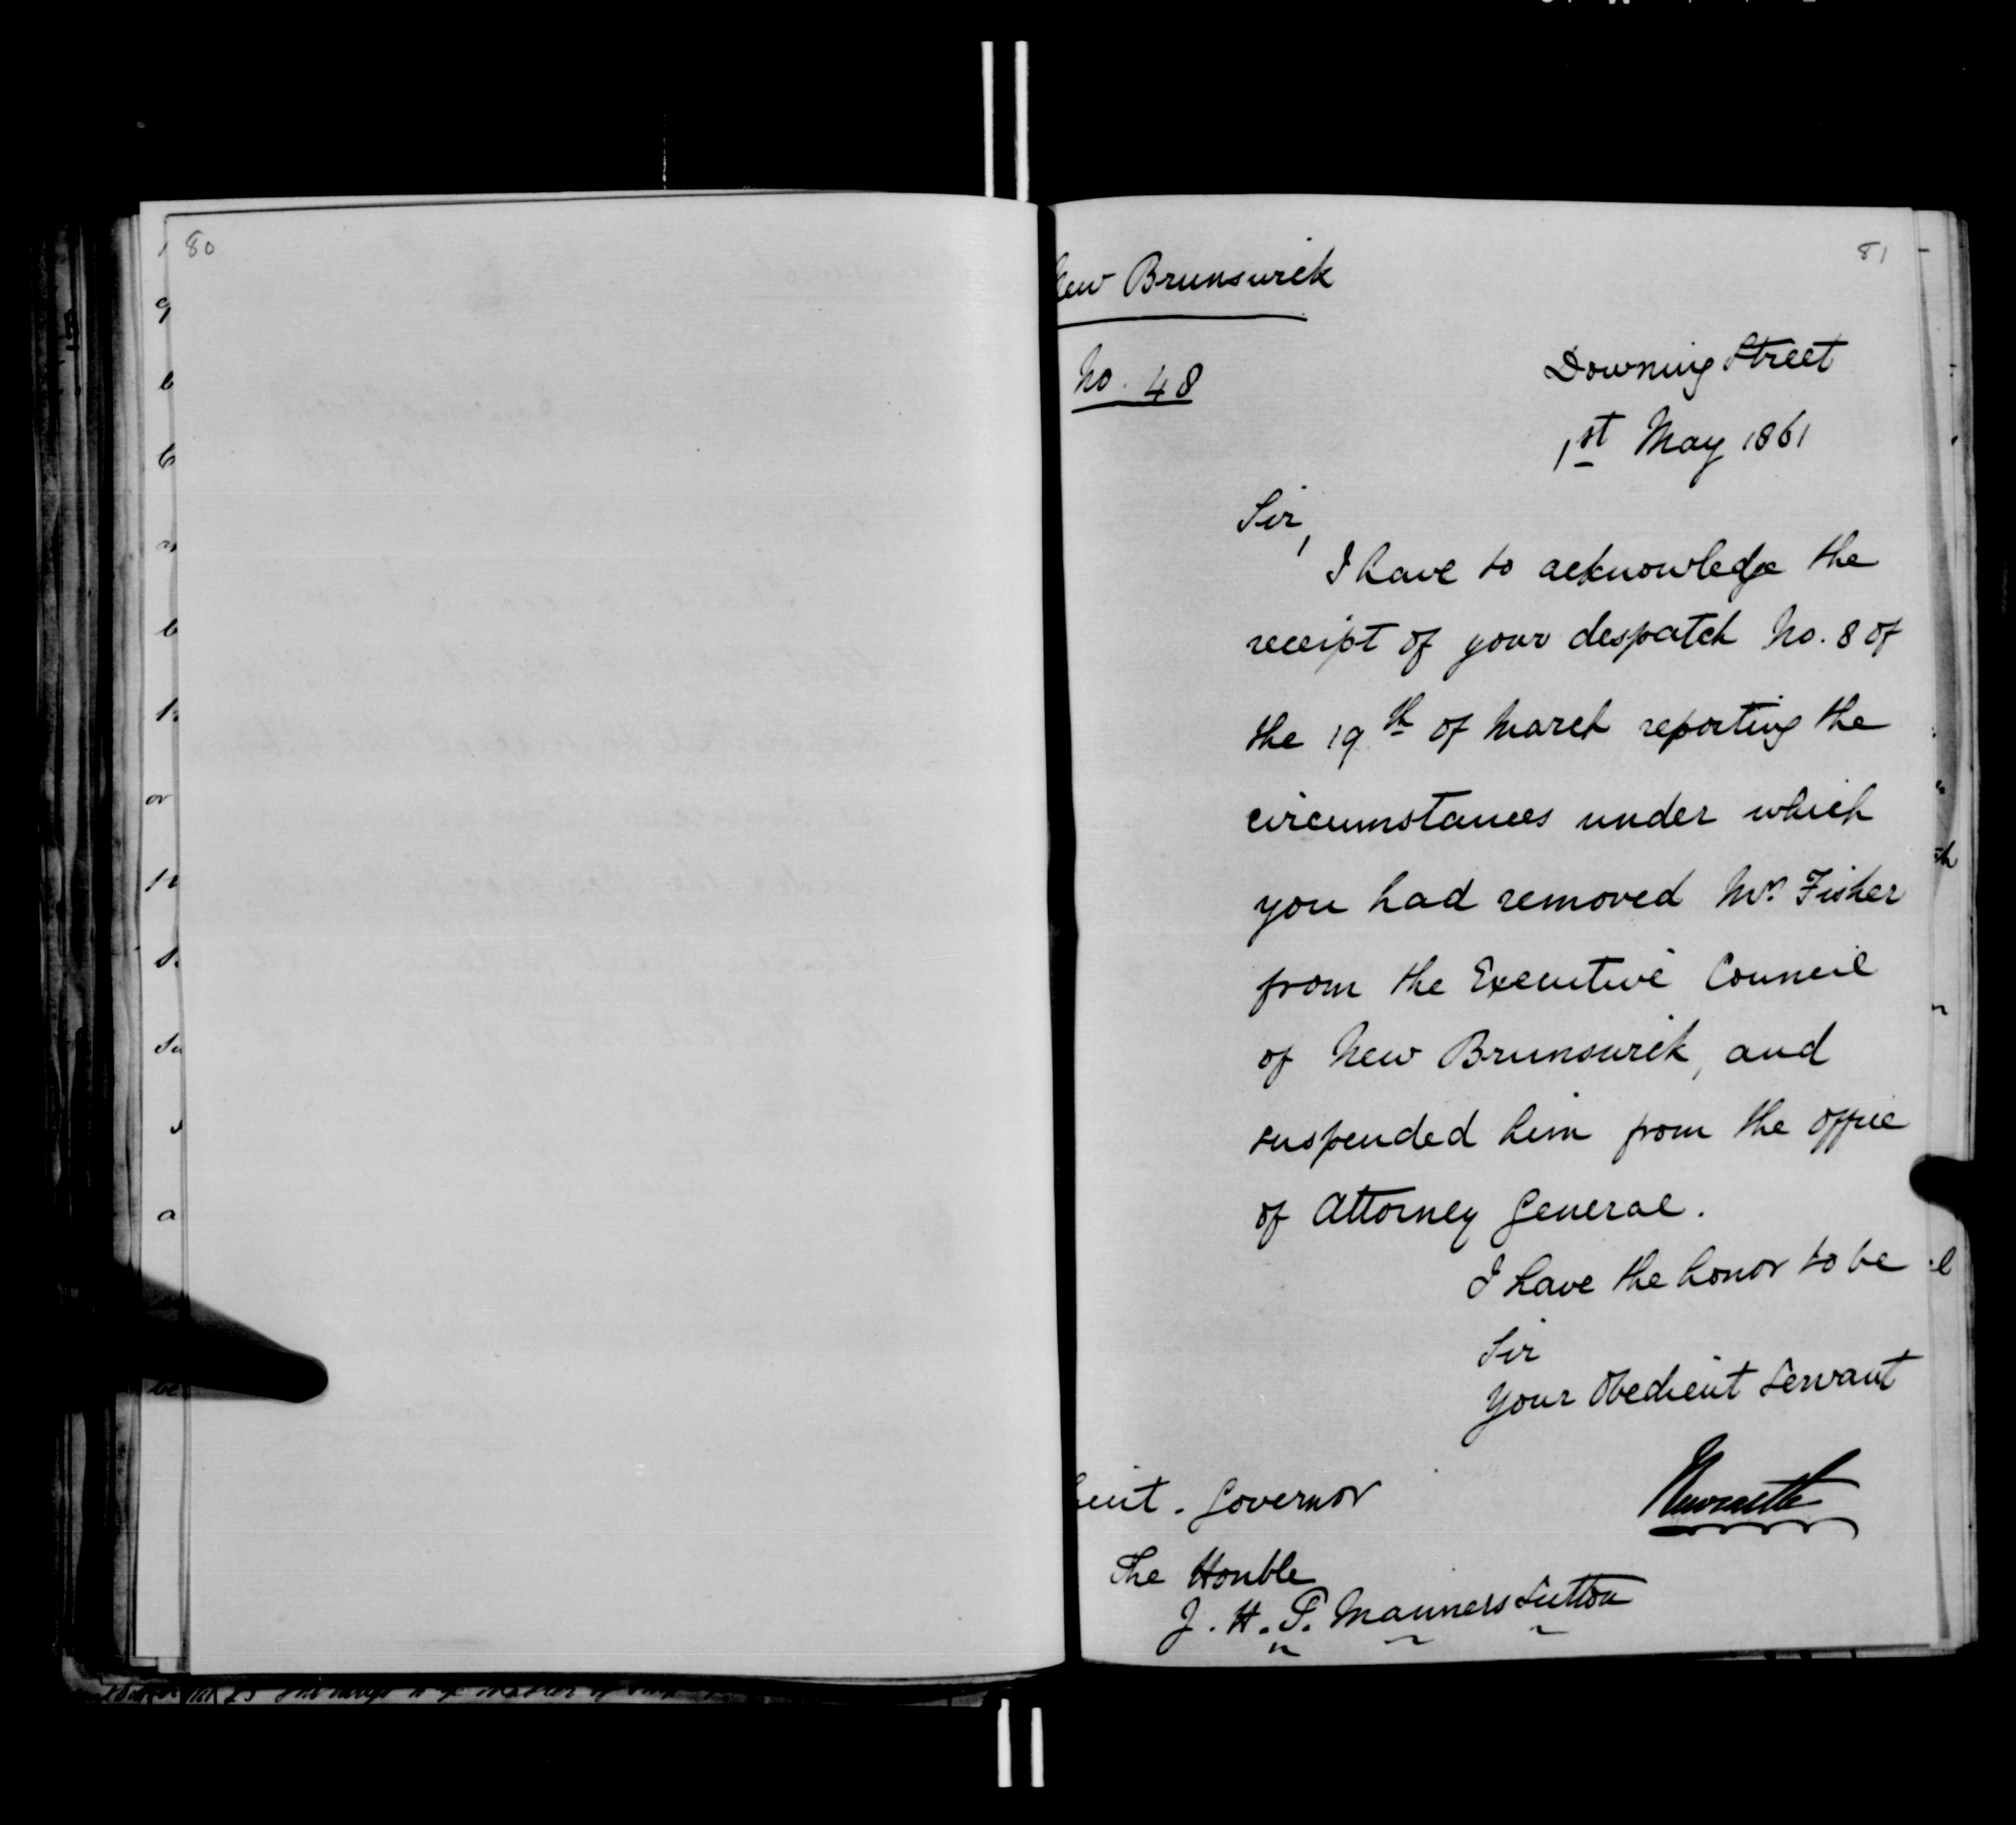 80
81
New Brunswick
No. 48
Downing Street
1st May 1861
Sir,
I have to acknowledge the
receipt of your despatch No. 8 of
the 19th of March reporting the
circumstances under which
you had removed Mr. Fisher
from the Executive Council
of New Brunswick, and
suspended him from the office
of Attorney General.
I have the honor to be
Sir
Your Obedient Servant
Newcastle
Lieut. Governor
The Honble
J. H. T. Manners Sutton